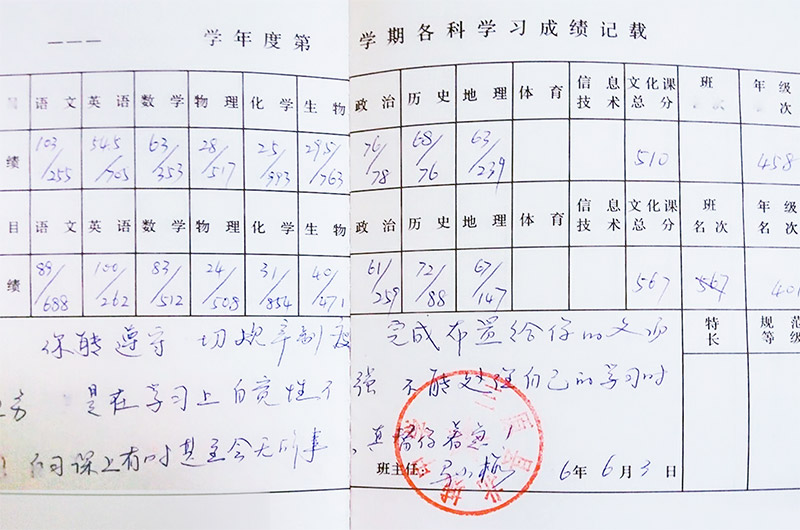 学年度第 学期各科学习成绩记载
语文 英语 数学 物理 化学 生物 政治 历史 地理 体育 信息技术 文化课总分 班 次 年级 次
绩 103/255 54.5/705 63/353 28/517 25/993 29.5/763 76/78 68/76 63/239 510 458
目 语文 英语 数学 物理 化学 生物 政治 历史 地理 体育 信息技术 文化课总分 班名次 年级名次
绩 89/688 100/262 83/512 24/508 31/854 40/471 61/259 72/88 67/147 567 567 401
你能遵守 切规章制度 完成布置给你的 特长 规范等级
是在学习上自觉性不强 不能处理自己的学习时
习课上有时甚至会无所事 真替你着急！
班主任： 6年6月3日